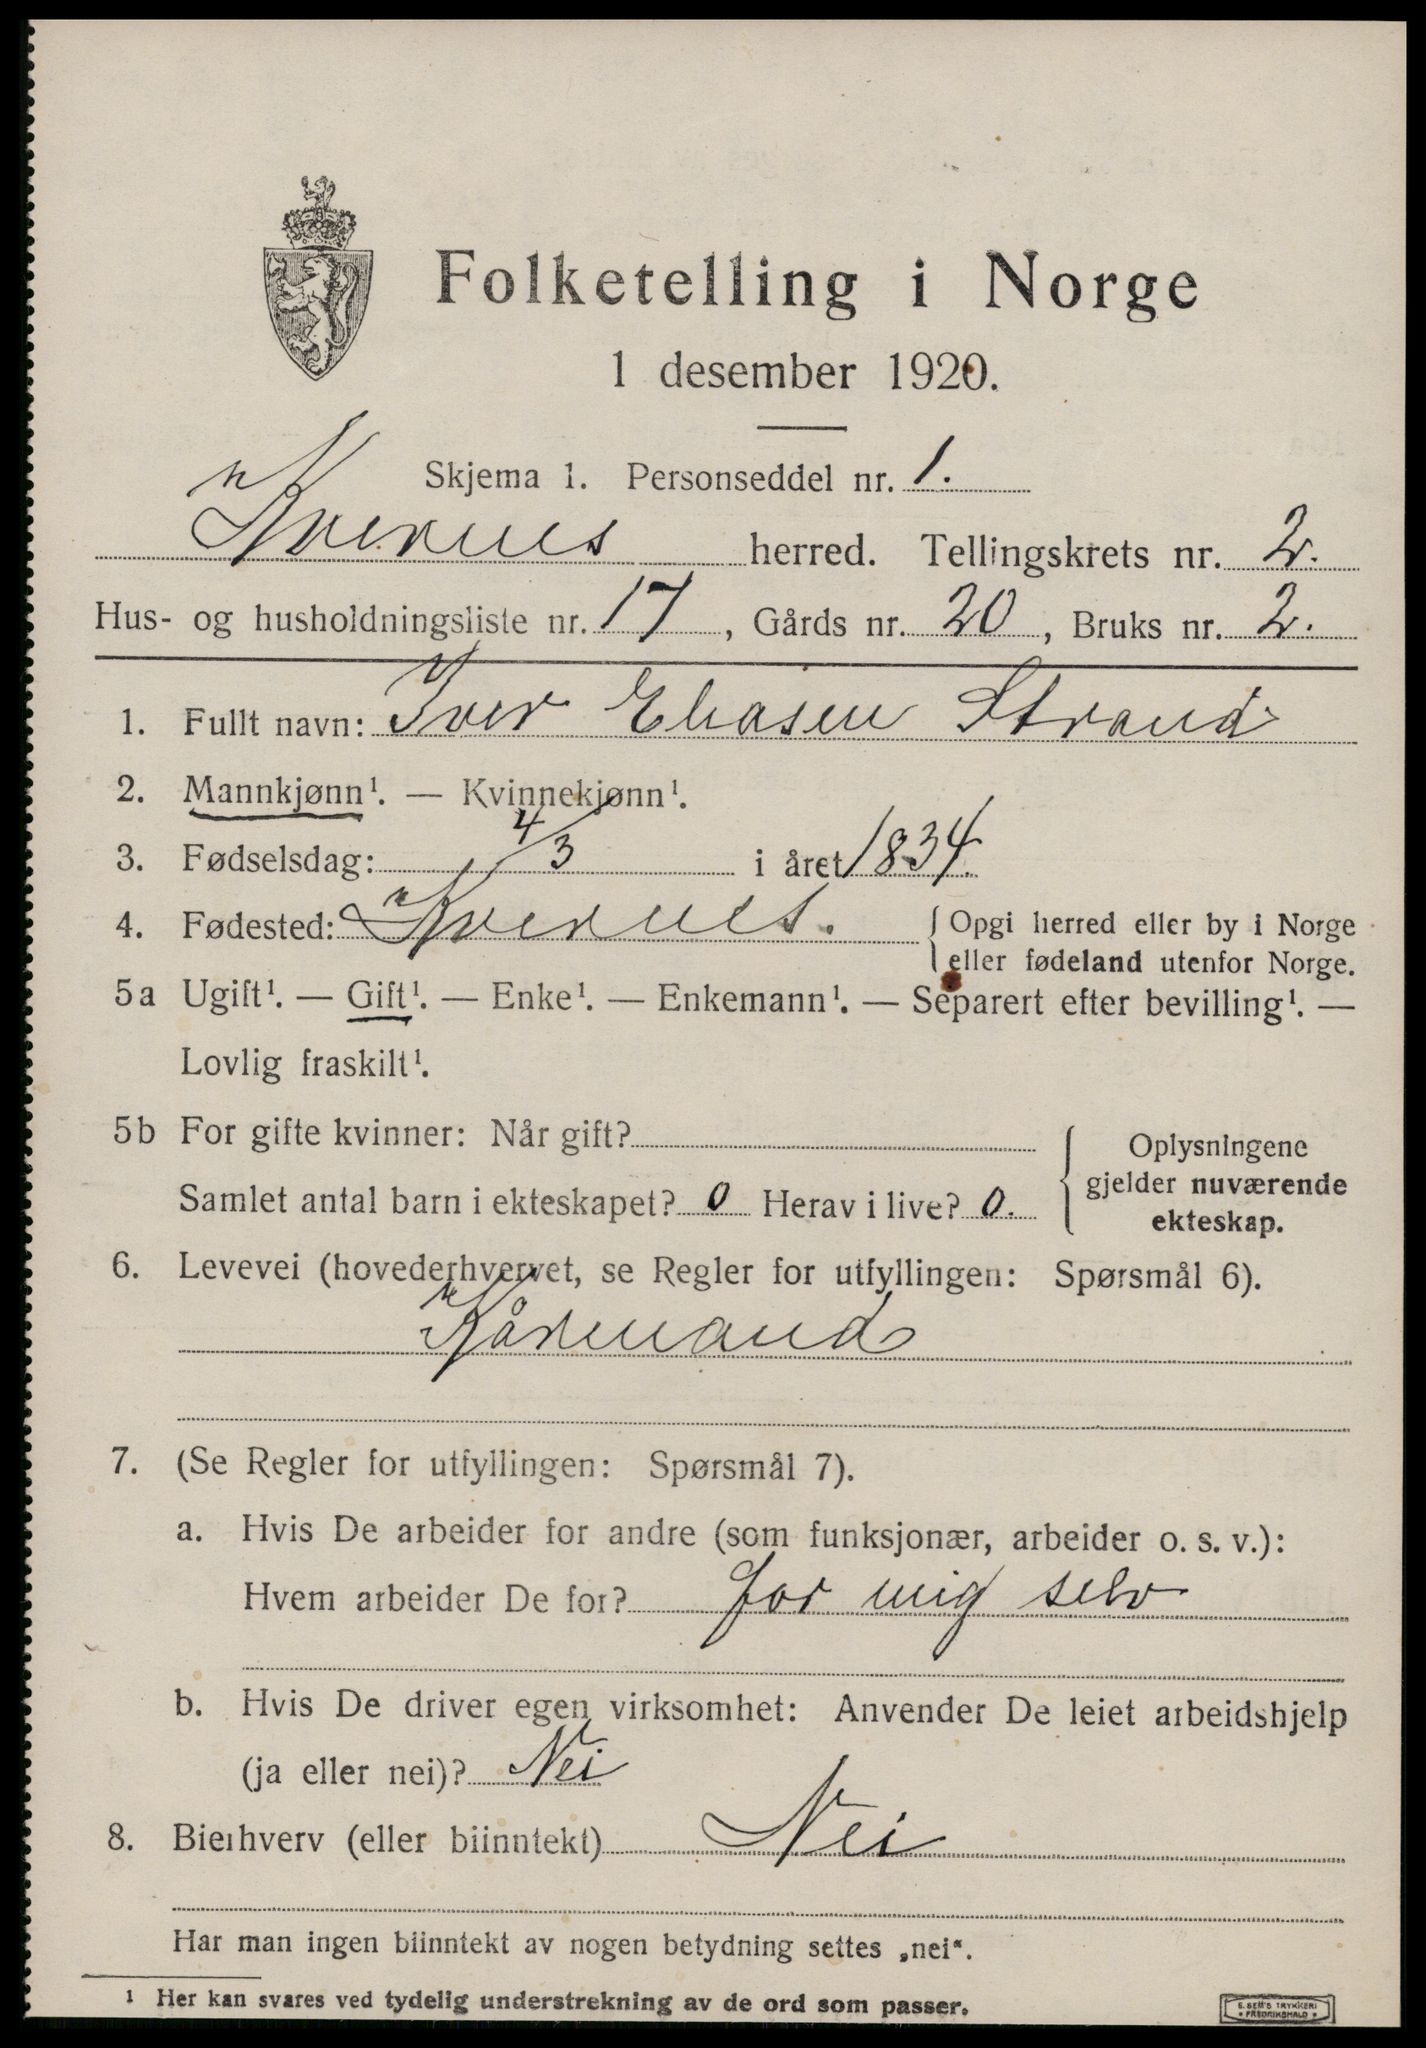 Folketelling i Norge
1 desember 1920.
Skjema 1. Personseddel nr. 1.
Kvernes herred. Tellingskrets nr. 2.
Hus- og husholdningsliste nr. 17, Gårds nr. 20, Bruks nr. 2.
1. Fullt navn: Iver Eliasen Strand
2. Mannkjønn¹. — Kvinnekjønn¹.
3. Fødselsdag: 4/3 i året 1834.
4. Fødested: Kvernes. { Opgi herred eller by i Norge
eller fødeland utenfor Norge.
5a Ugift¹. — Gift¹. — Enke¹. — Enkemann¹. — Separert efter bevilling¹. —
Lovlig fraskilt¹.
5b For gifte kvinner: Når gift?
Samlet antal barn i ekteskapet? 0 Herav i live? 0.
{ Oplysningene
gjelder nuværende
ekteskap.
6. Levevei (hovederhvervet, se Regler for utfyllingen: Spørsmål 6).
Kårmand
7. (Se Regler for utfyllingen: Spørsmål 7).
a. Hvis De arbeider for andre (som funksjonær, arbeider o. s. v.):
Hvem arbeider De for? for mig selv
b. Hvis De driver egen virksomhet: Anvender De leiet arbeidshjelp
(ja eller nei)? Nei
8. Bierhverv (eller biinntekt) Nei
Har man ingen biinntekt av nogen betydning settes „nei“.
¹ Her kan svares ved tydelig understrekning av de ord som passer.
E. SEM'S TRYKKERI
* FREDRIKSHALD *